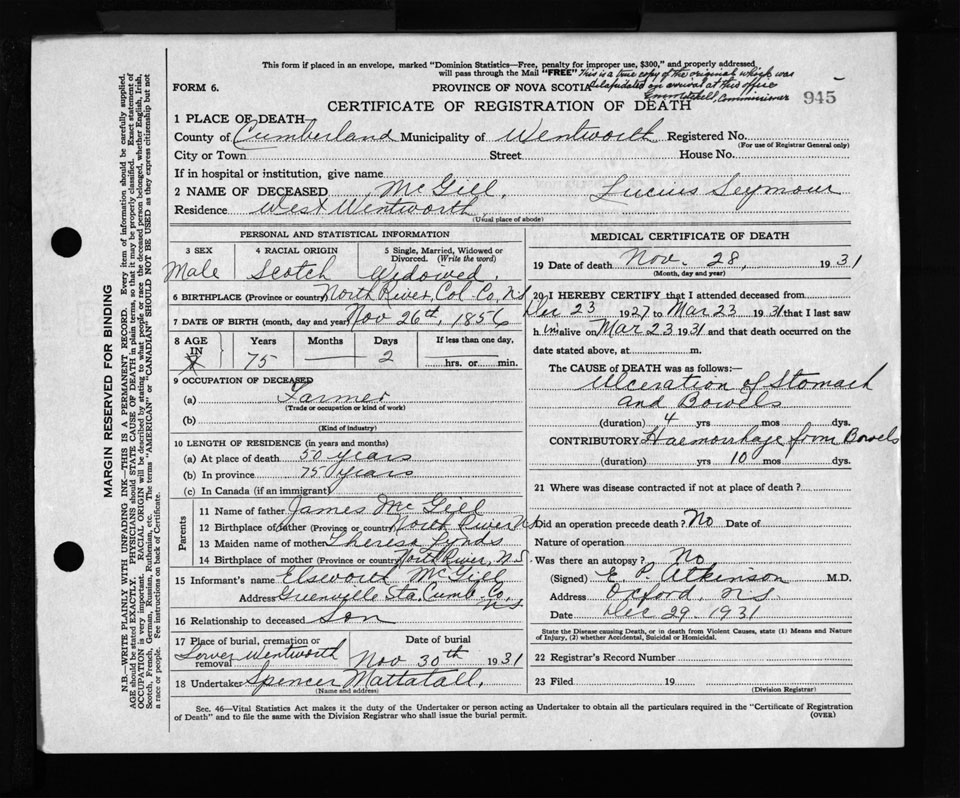 This form if placed in an envelope, marked "Dominion Statistics—Free, penalty for improper use, $300," and properly addressed
will pass through the Mail "FREE" This is a true copy of the original which was
FORM 6. PROVINCE OF NOVA SCOTIA dilapidated on arrival at this office
Commissioner 945
CERTIFICATE OF REGISTRATION OF DEATH
1 PLACE OF DEATH—
County of Cumberland Municipality of Wentworth Registered No.
(For use of Registrar General only)
City or Town Street House No.
If in hospital or institution, give name
2 NAME OF DECEASED McGill, Lucius Seymour
Residence West Wentworth
(Usual place of abode)
PERSONAL AND STATISTICAL INFORMATION
3 SEX 4 RACIAL ORIGIN 5 Single, Married, Widowed or
Divorced. (Write the word)
Male Scotch Widowed.
6 BIRTHPLACE (Province or country) North River, Col. Co, N.S
7 DATE OF BIRTH (month, day and year) Nov 26th, 1856
8 AGE Years Months Days If less than one day,
IN 75 2 hrs. or min.
9 OCCUPATION OF DECEASED
(a) Farmer
(Trade or occupation or kind of work)
(b)
(Kind of industry)
10 LENGTH OF RESIDENCE (in years and months)
(a) At place of death 50 years
(b) In province 75 years
(c) In Canada (if an immigrant)
Parents
11 Name of father James McGill
12 Birthplace of father (Province or country) North River N.S
13 Maiden name of mother Theresa Lynds
14 Birthplace of mother (Province or country) North River, N.S.
15 Informant's name Elsworth McGill
Address Greenville Sta. Cumb. Co,
N.S
16 Relationship to deceased Son
17 Place of burial, cremation or Date of burial
removal Lower Wentworth Nov 30th 1931
18 Undertaker Spencer Mattatall,
(Name and address)
MEDICAL CERTIFICATE OF DEATH
19 Date of death Nov. 28, 1931
(Month, day and year)
20 I HEREBY CERTIFY that I attended deceased from
Dec 23 1927 to Mar 23 1931 that I last saw
h im alive on Mar 23 1931 and that death occurred on the
date stated above, at m.
The CAUSE of DEATH was as follows:—
Ulceration of Stomach
and Bowels
(duration) 4 yrs mos dys.
CONTRIBUTORY Haemorrhage from Bowels
(duration) yrs 10 mos dys.
21 Where was disease contracted if not at place of death?
Did an operation precede death? No Date of
Nature of operation
Was there an autopsy? No
(Signed) E. P. Atkinson M.D.
Address Oxford, N.S.
Date Dec 29. 1931
State the Disease causing Death, or in death from Violent Causes, state (1) Means and Nature
of Injury, (2) whether Accidental, Suicidal or Homicidal.
22 Registrar's Record Number
23 Filed 19
(Division Registrar)
Sec. 46—Vital Statistics Act makes it the duty of the Undertaker or person acting as Undertaker to obtain all the particulars required in the "Certificate of Registration
of Death" and to file the same with the Division Registrar who shall issue the burial permit. (OVER)
MARGIN RESERVED FOR BINDING
N.B.—WRITE PLAINLY WITH UNFADING INK—THIS IS A PERMANENT RECORD. Every item of information should be carefully supplied.
AGE should be stated EXACTLY. PHYSICIANS should STATE CAUSE OF DEATH in plain terms, so that it may be properly classified. Exact statement of
OCCUPATION is very important. RACIAL ORIGIN will be described by stating to what people or race the deceased person belonged, whether English, Irish,
Scotch, French, German, Russian, Ruthenian, etc. The terms "AMERICAN" or "CANADIAN" SHOULD NOT BE USED as they express citizenship but not
a race or people. Fee instructions on back of Certificate.